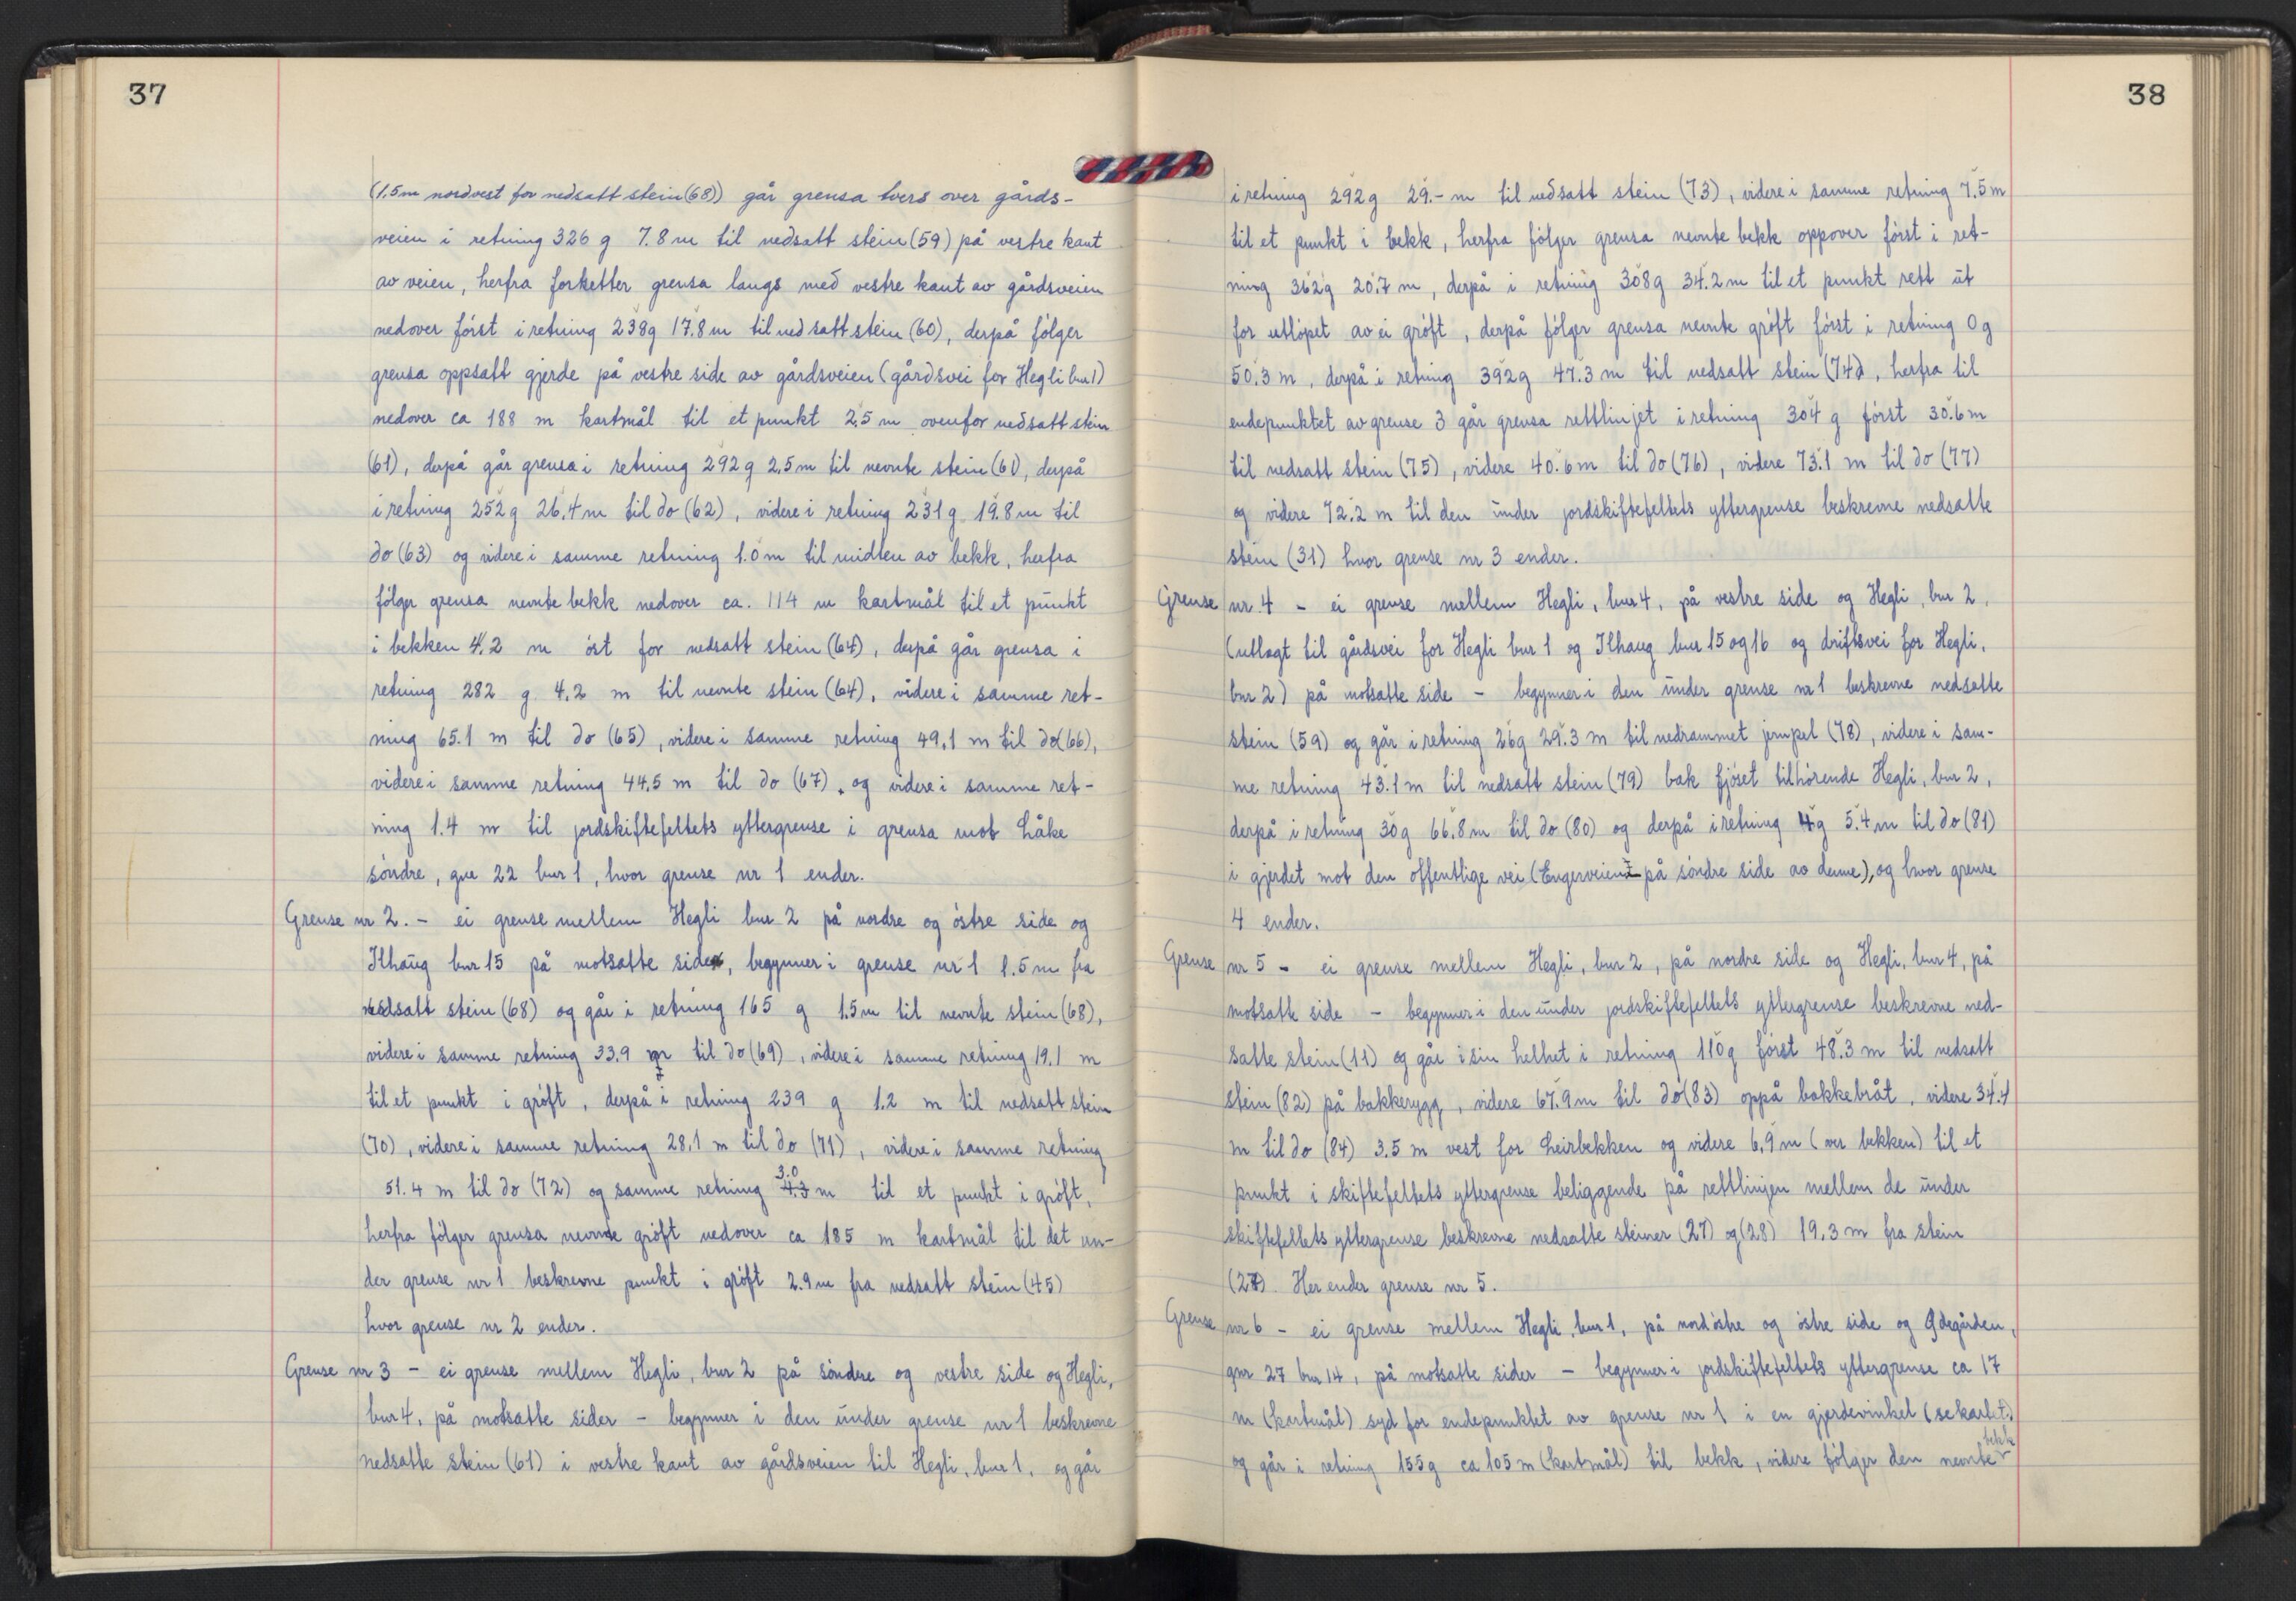 37
(1.5 m nordvest for nedsatt stein (68)) går grensa tvers over gårds-
veien i retning 326 g 7.8 m til nedsatt stein (59) på vestre kant
av veien, herfra forketter grensa langs med vestre kant av gårdsveien
nedover først i retning 238 g 17.8 m til nedsatt stein (60), derpå følger
grensa oppsatt gjerde på vestre side av gårdsveien (gårdsvei for Hegli bnr 1)
nedover ca 188 m kartmål til et punkt 2,5 m ovenfor nedsatt stein
(61), derpå går grensa i retning 292 g 2,5 m til nevnte stein (61), derpå
i retning 252 g 26,4 m til do (62), videre i retning 231 g 19.8 m til
do (63) og videre i samme retning 1.0 m til midten av bekk, herfra
følger grensa nevnte bekk nedover ca. 114 m kartmål til et punkt
i bekken 4,2 m øst for nedsatt stein (64), derpå går grensa i
retning 282 g 4,2 m til nevnte stein (64), videre i samme ret-
ning 65.1 m til do (65), videre i samme retning 49,1 m til do (66),
videre i samme retning 44,5 m til do (67), og videre i samme ret-
ning 1.4 m til jordskiftefeltets yttergrense i grensa mot Låke
søndre, gnr 22 bnr 1, hvor grense nr 1 ender.
Grense nr 2. - ei grense mellem Hegli bnr 2 på nordre og østre side og
Ilhaug bnr 15 på motsatte side, begynner i grense nr 1 1.5 m fra
nedsatt stein (68) og går i retning 165 g 1.5 m til nevnte stein (68),
videre i samme retning 33,9 m til do (69), videre i samme retning 19.1 m
til et punkt i grøft, derpå i retning 239 g 1.2 m til nedsatt stein
(70), videre i samme retning 28,1 m til do (71), videre i samme retning
51.4 m til do (72) og samme retning 4.3 3.0 m til et punkt i grøft,
herfra følger grensa nevnte grøft nedover ca 185 m kartmål til det un-
der grense nr 1 beskrevne punkt i grøft 2.9 m fra nedsatt stein (45)
hvor grense nr 2 ender.
Grense nr 3 - ei grense mellem Hegli, bnr 2 på søndre og vestre side og Hegli,
bnr 4, på motsatte sider - begynner i den under grense nr 1 beskrevne
nedsatte stein (61) i vestre kant av gårdsveien til Hegli, bnr 1, og går
38
i retning 292 g 29.- m til nedsatt stein (73), videre i samme retning 7.5 m
til et punkt i bekk, herfra følger grensa nevnte bekk oppover først i ret-
ning 362 g 20.7 m, derpå i retning 308 g 34.2 m til et punkt rett ut
for utløpet av ei grøft, derpå følger grensa nevnte grøft først i retning 0 g
50.3 m, derpå i retning 392 g 47.3 m til nedsatt stein (74), herfra til
endepunktet av grense 3 går grensa rettlinjet i retning 304 g først 30.6 m
til nedsatt stein (75), videre 40.6 m til do (76), videre 73.1 m til do (77)
og videre 72.2 m til den under jordskiftefeltets yttergrense beskrevne nedsatte
stein (31) hvor grense nr 3 ender.
Grense nr 4 - ei grense mellem Hegli, bnr 4, på vestre side og Hegli, bnr 2,
(utlagt til gårdsvei for Hegli bnr 1 og Ilhaug bnr 15 og 16 og driftsvei for Hegli,
bnr 2) på motsatte side - begynner i den under grense nr 1 beskrevne nedsatte
stein (59) og går i retning 26 g 29.3 m til nedrammet jernpel (78), videre i sam-
me retning 43.1 m til nedsatt stein (79) bak fjøset tilhørende Hegli, bnr 2,
derpå i retning 30 g 66.8 m til do (80) og derpå i retning 4 g 5.4 m til do (81)
i gjerdet mot den offentlige vei (Engerveien på søndre side av denne), og hvor grense
4 ender.
Grense nr 5 - ei grense mellem Hegli, bnr 2, på nordre side og Hegli, bnr 4, på
motsatte side - begynner i den under jordskiftefeltets yttergrense beskrevne ned-
satte stein (11) og går i sin helhet i retning 110 g først 48.3 m til nedsatt
stein (82) på bakkerygg, videre 67.9 m til do (83) oppå bakkebråt, videre 34.4
m til do (84) 3.5 m vest for Leirbekken og videre 6,9 m (ver bekken) til et
punkt i skiftefeltets yttergrense beliggende på rettlinjen mellem de under
skiftefeltets yttergrense beskrevne nedsatte steiner (27) og (28) 19.3 m fra stein
(27). Her ender grense nr 5.
Grense nr 6 - ei grense mellem Hegli, bnr 1, på nordøstre og østre side og Ødegården,
gnr 27 bnr 14, på motsatte sider - begynner i jordskiftefeltets yttergrense ca 17
m (kartmål) syd for endepunktet av grense nr 1 i en gjerdevinkel (se kartet)
og går i retning 155 g ca 105 m (kartmål) til bekk, videre følger den nevnte bekk